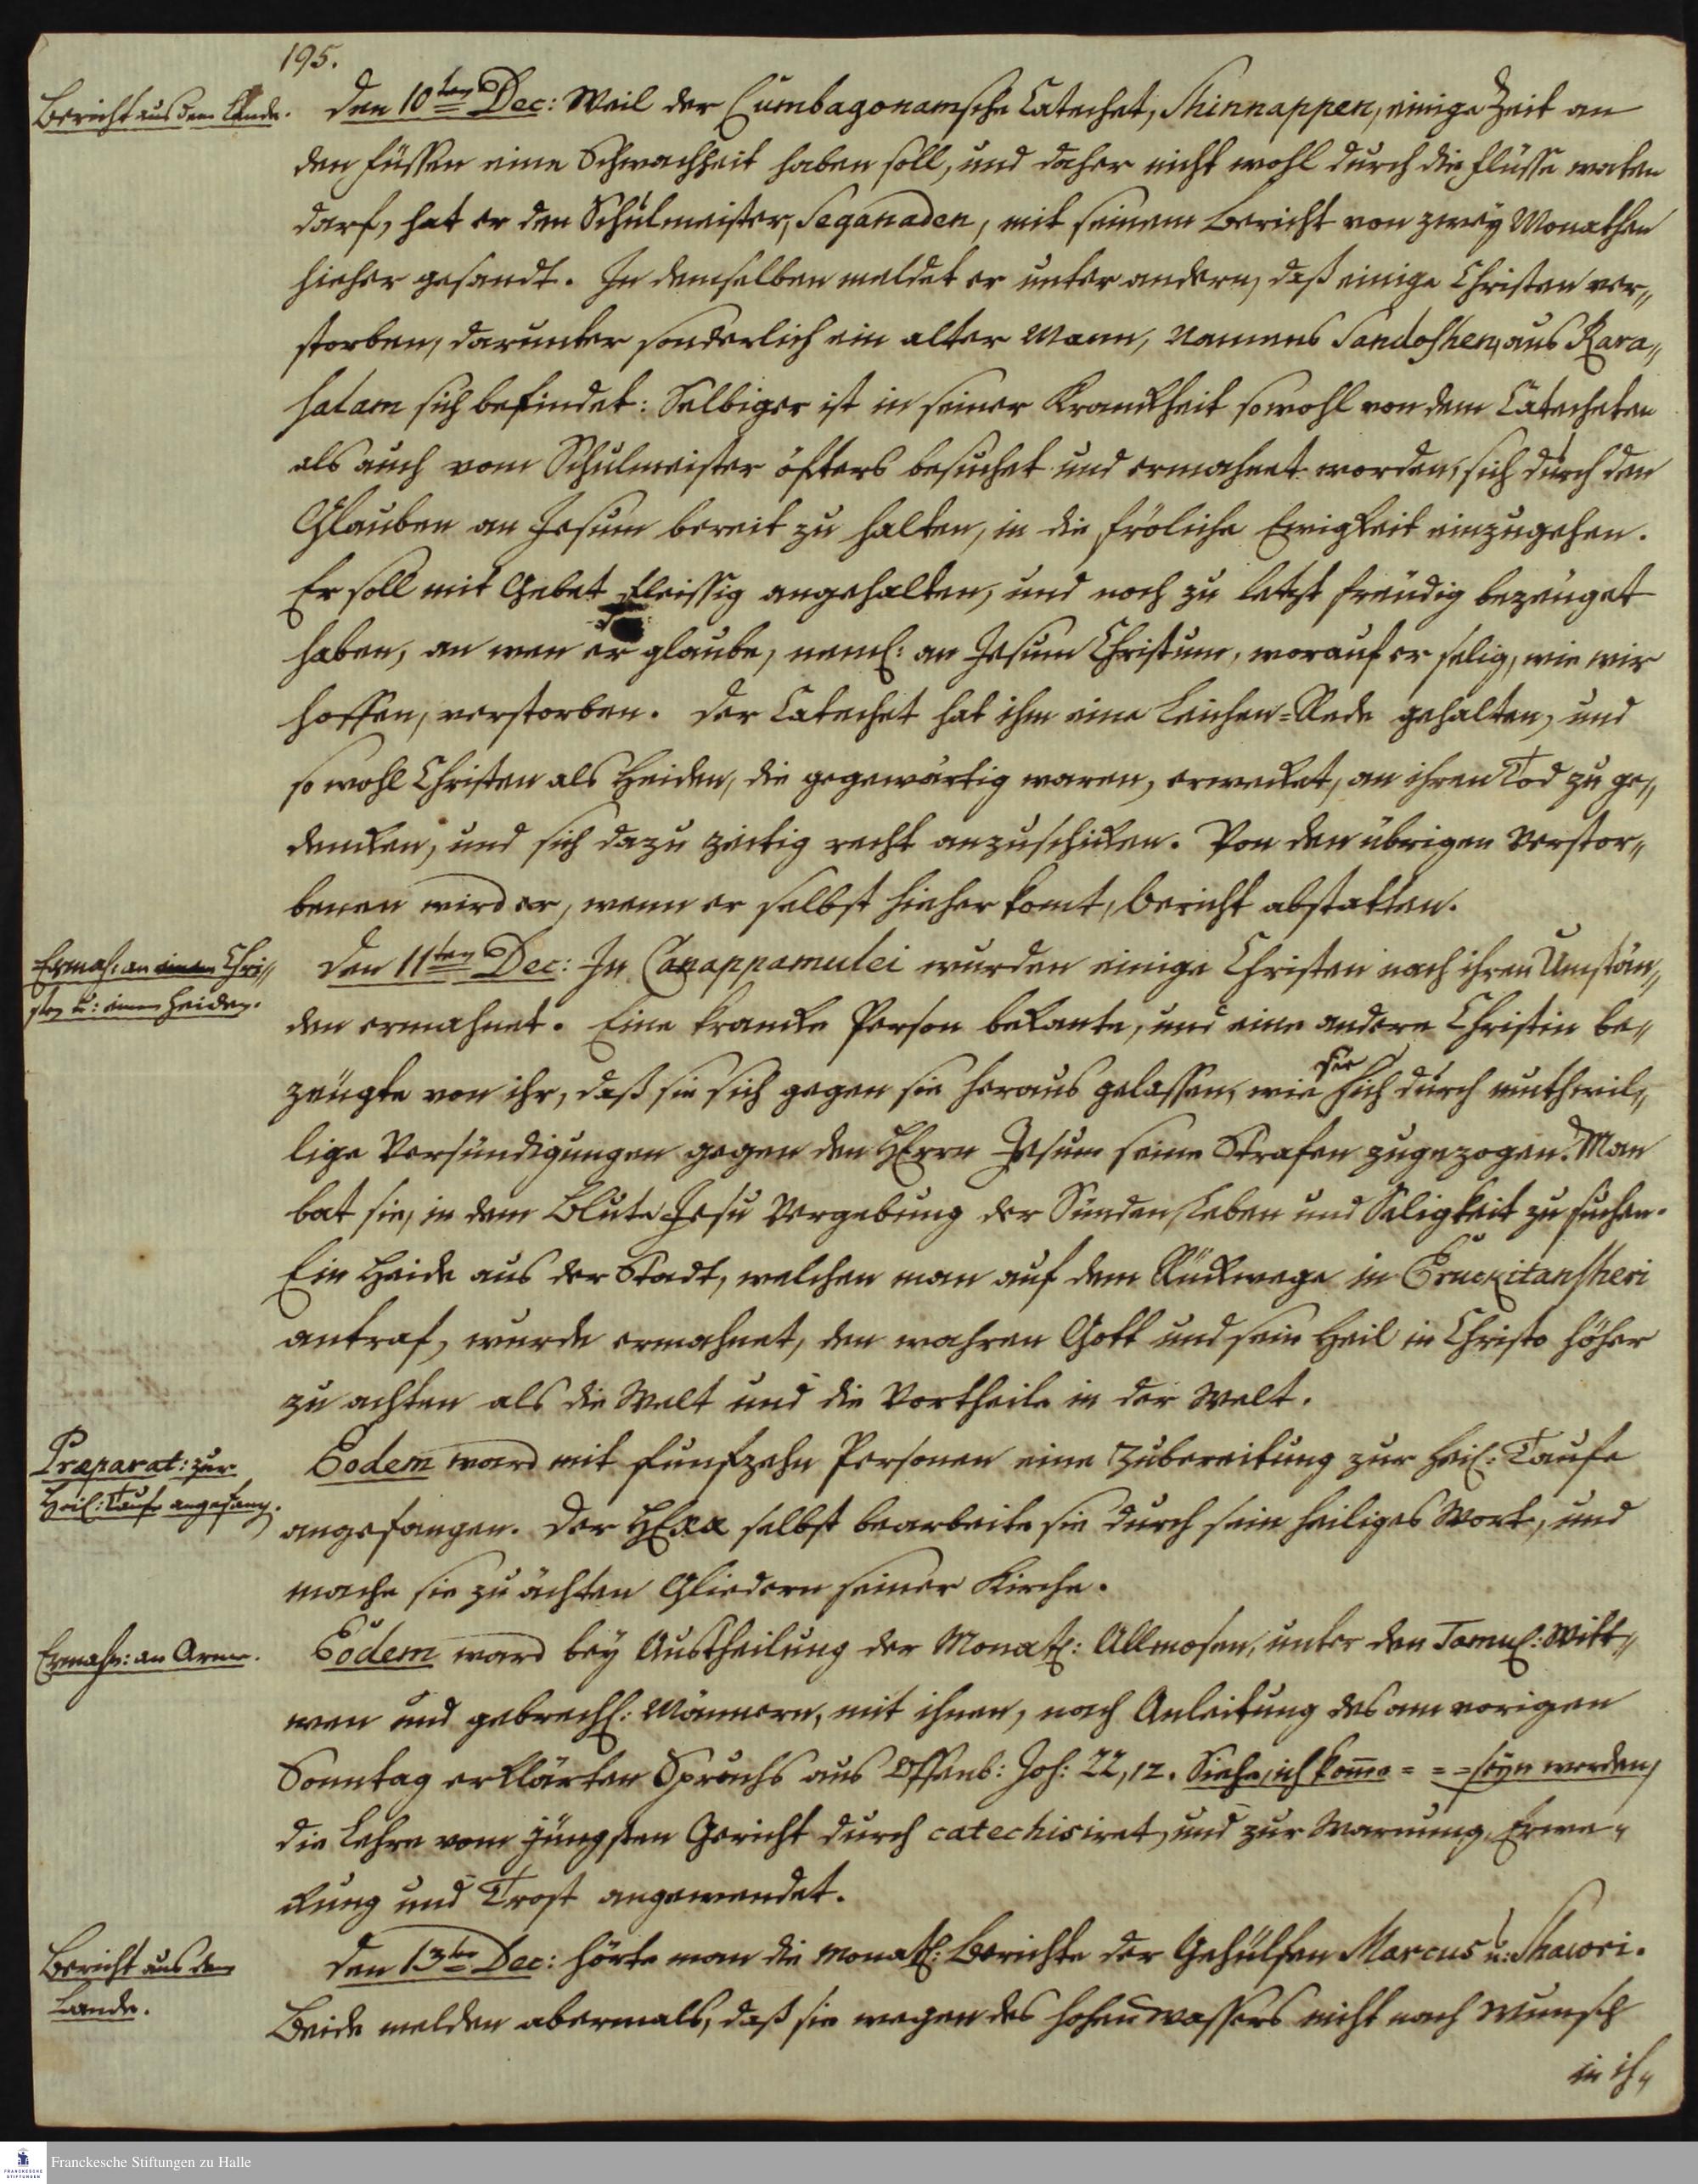 195.
Bericht aus dem Lande.
Den 10ten Dec: Weil der Cumbagonamsche Catechet, Shinnappen, einige Zeit an
den Füssen eine Schwachheit haben soll, und daher nicht wohl durch die Flüsse waten
darf, hat er den Schulmeister, Seganaden, mit seinem Bericht von zwey Monathen
hieher gesandt. In demselben meldet er unter andern, daß einige Christen ver„
storben, darunter sonderlich ein alter Mann, Namens Sandoshen, aus Kara„
salam sich befindet: Selbiger ist in seiner Kranckheit sowohl von dem Catecheten
als auch vom Schulmeister öfters besuchet und ermahnet worden, sich durch den
Glauben an Jesum bereit zu halten, in die fröliche Ewigkeit einzugehen.
Er soll mit Gebet fleissig angehalten, und noch zu letzt freudig bezeuget
haben, an wen er glaube, neml: an Jesum Christum, worauf er selig, wie wir
hoffen, verstorben. Der Catechet hat ihm eine Leichen=Rede gehalten, und
so wohl Christen als Heiden, die gegewärtig waren, erwecket, an ihren Tod zu ge„
dencken, und sich dazu zeitig recht anzuschicken. Von den übrigen Verstor„
benen wird er, wenn er selbst hieher komt, Bericht abstatten.
Ermah: an einem Chri„
sten u: einem Heiden.
Den 11ten Dec: In Canappamulei wurden einige Christen nach ihren Umstän„
den ermahnet. Eine krancke Person bekante, und eine andere Christin be„
zeugte von ihr, daß sie sich gegen sie heraus gelassen, wie sie sich durch muthwil„
lige Versündigungen gegen den HErrn Jesum seine Strafen zugezogen. Man
bat sie, in dem Blute Jesu Vergebung der Sünden, Leben und Seligkeit zu suchen.
Ein Heide aus der Stadt, welchen man auf dem Rückwege in Eruckitansheri
antraf, wurde ermahnet, den wahren Gott und sein Heil in Christo höher
zu achten als die Welt und die Vortheile in der Welt.
Præparat: zur
Heil: Taufe angefang.
Eodem ward mit funfzehn Personen eine Zubereitung zur Heil: Taufe
angefangen. Der HErr selbst bearbeite sie durch sein heiliges Wort, und
mache sie zu ächten Gliedern seiner Kirche.
Ermahn: an Arme.
Eodem ward bey Austheilung der Monatl: Allmosen, unter den Tamul: Witt„
wen und gebrechl: Männern, mit ihnen, nach Anleitung des am vorigen
Sonntag erklärten Spruchs aus Offenb: Joh: 22, 12. Siehe, ich kom̄e = = = seyn werden,
die Lehre vom jüngsten Gericht durch catechisiret, und zur Warnung, Erwe„
ckung und Trost angewendet.
Bericht aus dem
Lande.
Den 13ten Dec: hörte man die Monatl: Berichte der Gehülfen Marcus u: Shawri.
Beide melden abermals, daß sie wegen des hohen Wassers nicht nach Wunsch
in ih„
Franckesche Stiftungen zu Halle
FRANCKESCHE
STIFTUNGEN